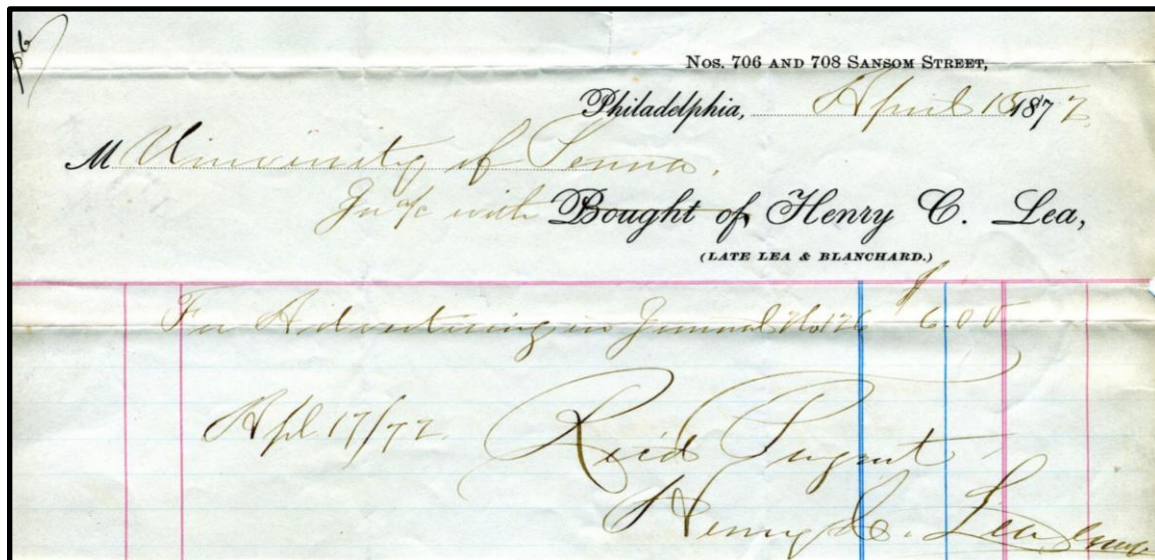 Nos. 706 AND 708 SANSOM STREET,
Philadelphia, April 15 1872
M University of Penna.
In a/c with Bought of Henry C. Lea,
(LATE LEA & BLANCHARD.)
For Advertising in Journal No 126 $ 6.00
Apl. 17/72. Rec'd Paymt
Henry C. Lea